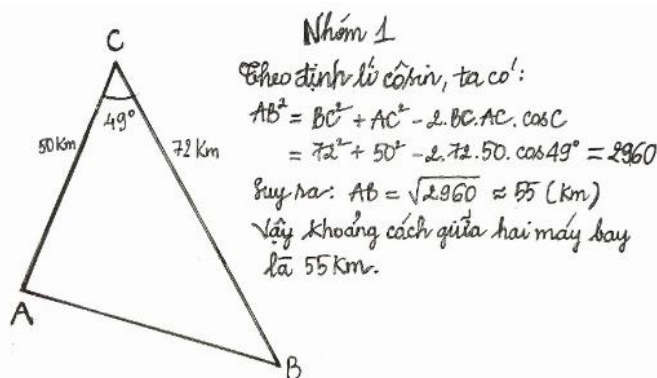 Nhóm 1
C
49°
50 Km
72 Km
A
B
Theo định lí côsin, ta có:
AB² = BC² + AC² - 2.BC.AC.cosC
= 72² + 50² - 2.72.50.cos49° = 2960
Suy ra: AB = √2960 ≈ 55 (Km)
Vậy khoảng cách giữa hai máy bay
là 55 Km.